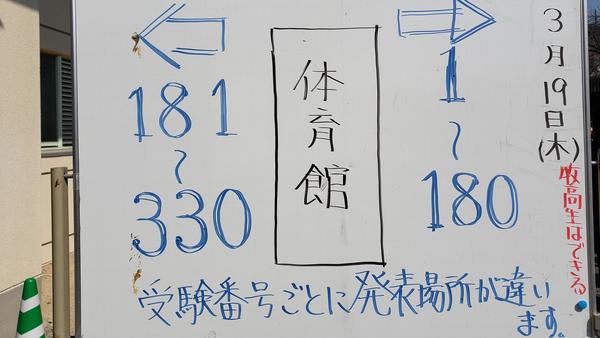 3月19日(木)
牧高生はできる
1
〜
180
体育館
181
〜
330
受験番号ごとに発表場所が違い
ます。